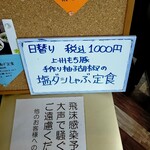 日替り 税込1000円
上州もち豚
手作り柚子胡椒の
塩ダレしゃぶ定食
飛沫感染予
大声で騒ぐ
ご遠慮くだ
他のお客様への